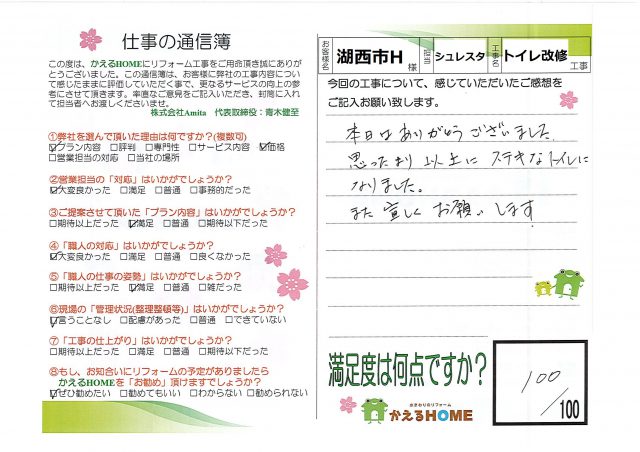 仕事の通信簿
この度は、かえるHOMEにリフォーム工事をご用命頂き誠にありが
とうございました。この通信簿は、お客様に弊社の工事内容につい
て感じたままに評価していただく事で、更なるサービスの向上の参
考にさせて頂きます。率直なご意見をご記入いただき、封筒に入れ
て担当者へお渡しくださいませ。
株式会社Amita 代表取締役：青木健至
①弊社を選んで頂いた理由は何ですか?(複数可)
☑プラン内容 □評判 □専門性 □サービス内容 ☑価格
□営業担当の対応 □当社の場所
②営業担当の「対応」はいかがでしょうか?
☑大変良かった □満足 □普通 □事務的だった
③ご提案させて頂いた「プラン内容」はいかがでしょうか?
□期待以上だった ☑満足 □普通 □期待以下だった
④「職人の対応」はいかがでしょうか?
☑大変良かった □満足 □普通 □良くなかった
⑤「職人の仕事の姿勢」はいかがでしょうか?
□期待以上だった ☑満足 □普通 □雑だった
⑥現場の「管理状況(整理整頓等)」はいかがでしょうか?
☑言うことなし □配慮があった □普通 □できていない
⑦「工事の仕上がり」はいかがでしょうか?
□期待以上だった □満足 □普通 □期待以下だった
⑧もし、お知合いにリフォームの予定がありましたら
かえるHOMEを「お勧め」頂けますでしょうか?
☑ぜひ勧めたい □勧めてもいい □わからない □勧められない
お客様名 湖西市H 様 担当 シュレスタ 工事名 トイレ改修 工事
今回の工事について、感じていただいたご感想を
ご記入お願い致します。
本日はありがとうございました
思ったより以上にステキなトイレに
なりました。
また宜しくお願いします
満足度は何点ですか?
100/100
かえるHOME